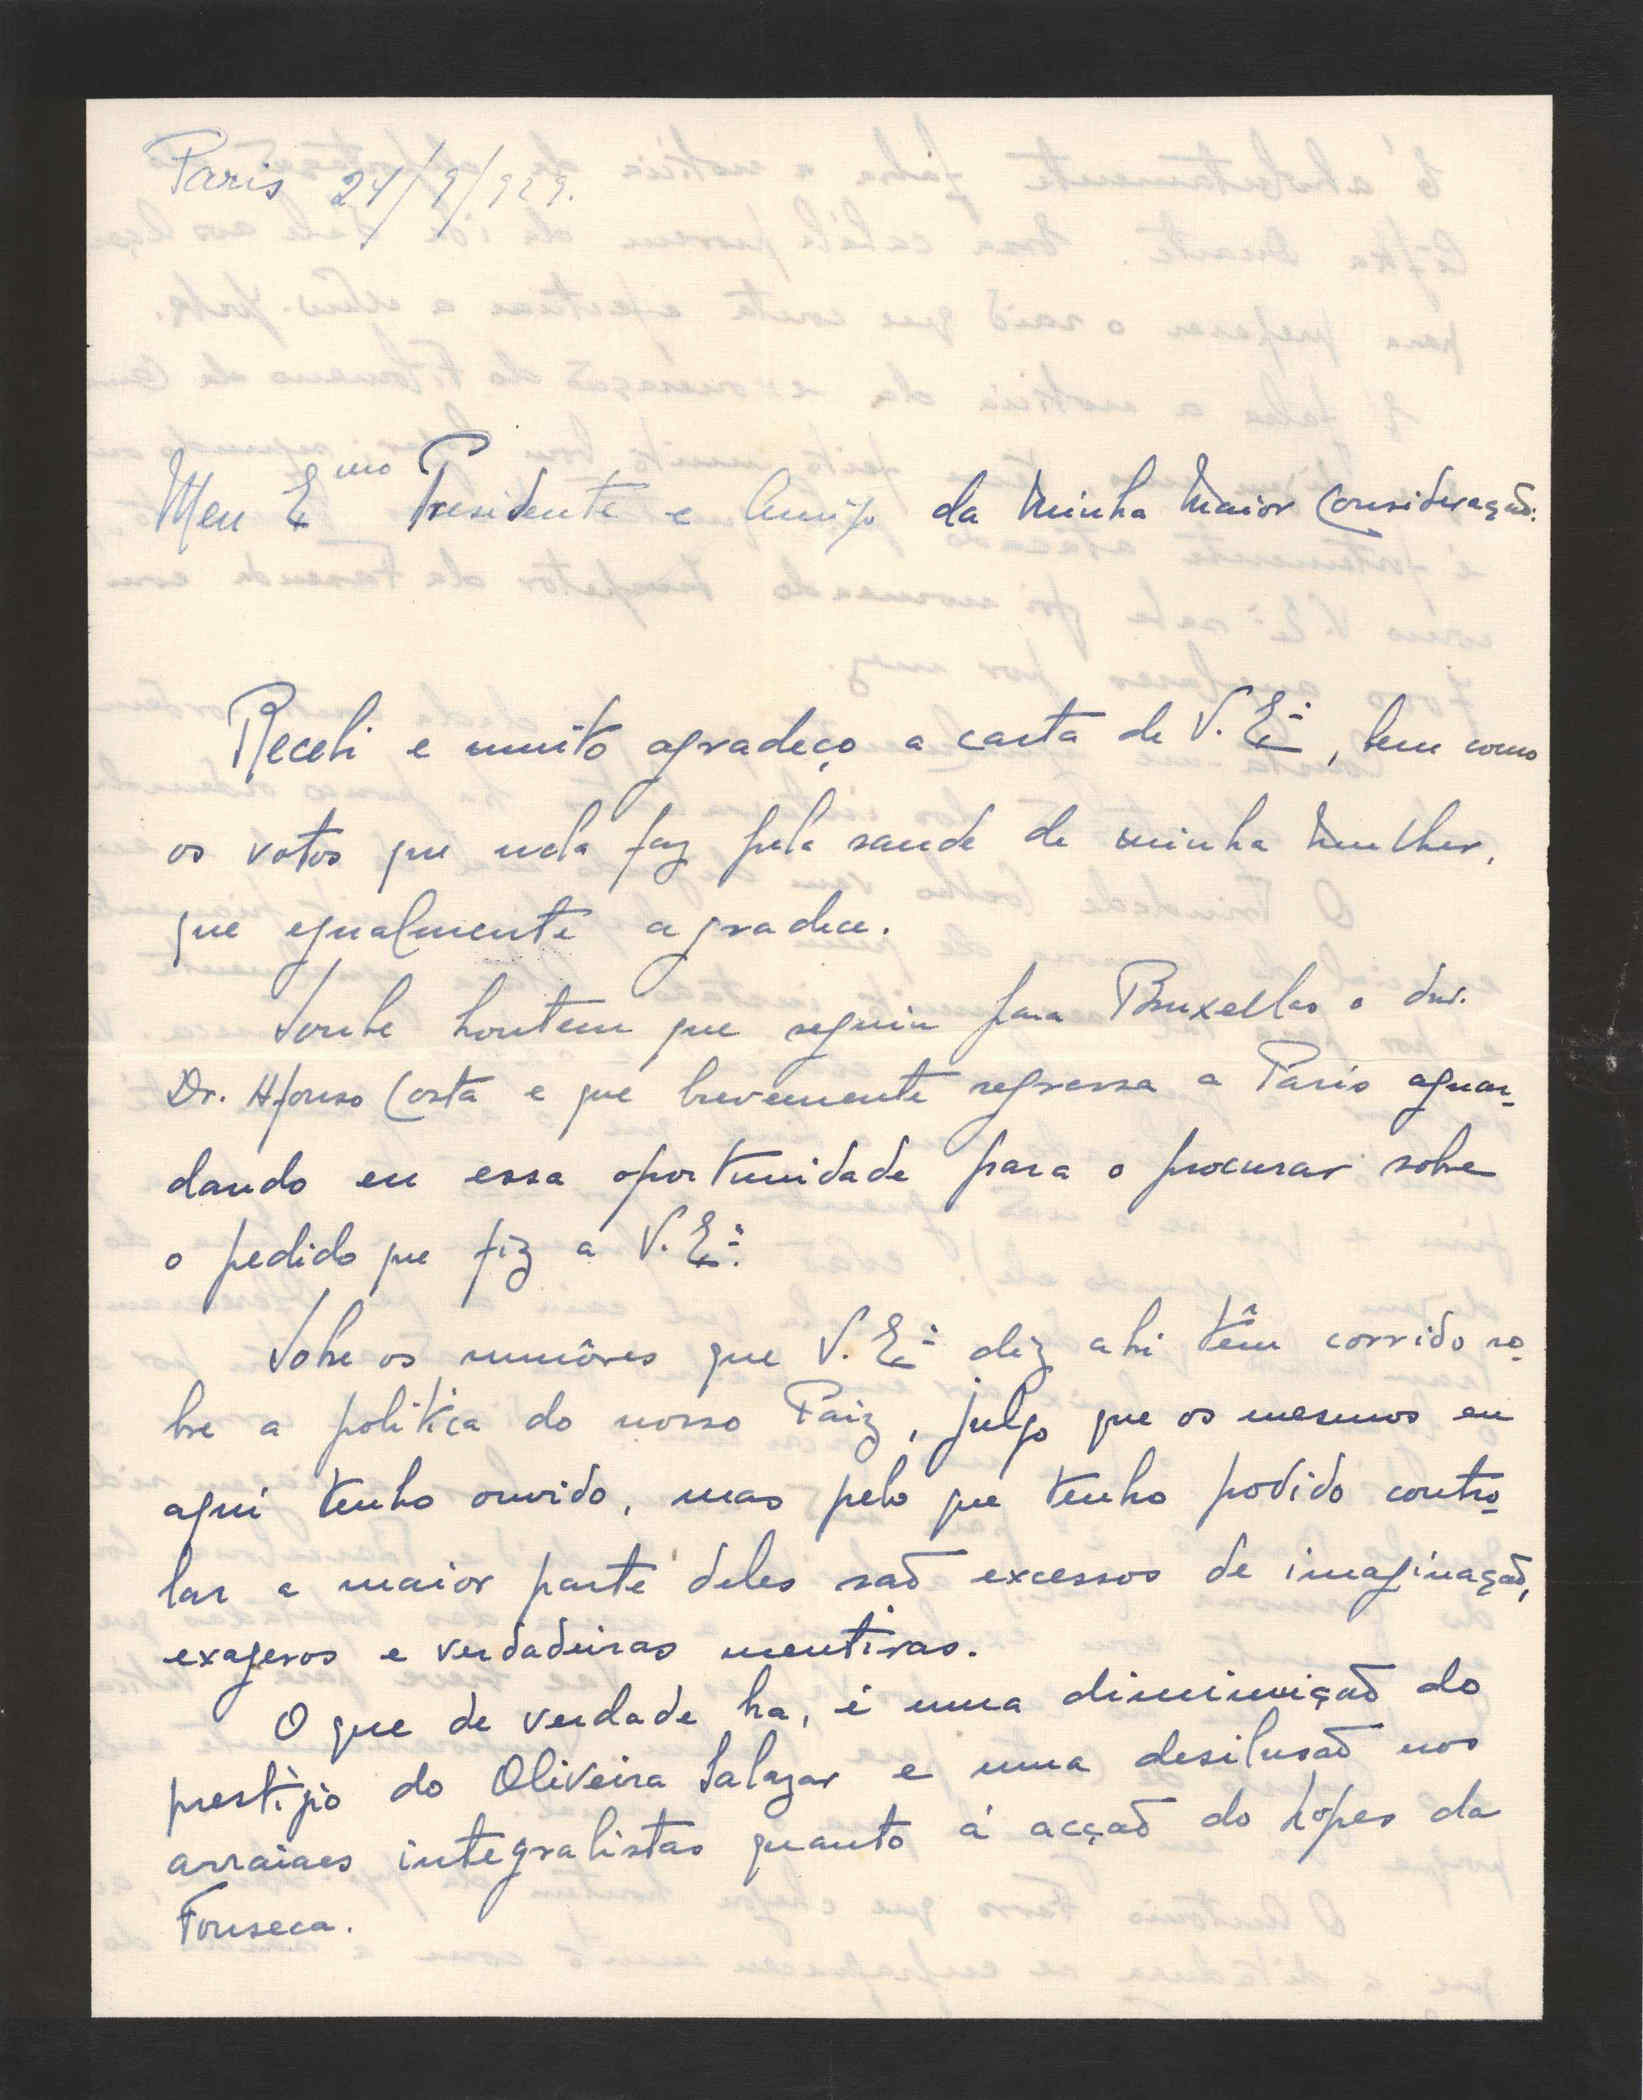 Paris 24/9/929.
Meu Emo Presidente e Amigo da Minha Maior Consideração:
Recebi e muito agradeço a carta de V. Exª, bem como
os votos que nela faz pela saude de minha Mulher,
que egualmente agradece.
Soube hontem que seguiu para Bruxellas o snr.
Dr. Afonso Costa e que brevemente regressa a Paris aguar-
dando eu essa oportunidade para o procurar sobre
o pedido que fiz a V. Exª.
Sobre os rumôres que V. Exª diz ahi têm corrido so-
bre a politica do nosso Paiz, julgo que os mesmos eu
aqui tenho ouvido, mas pelo que tenho podido contro-
lar a maior parte deles são excessos de imaginação,
exageros e verdadeiras mentiras.
O que de verdade ha, é uma diminuição do
prestigio do Oliveira Salazar e uma desilusão nos
arraiaes integralistas quanto á acção do Lopes da
Fonseca.